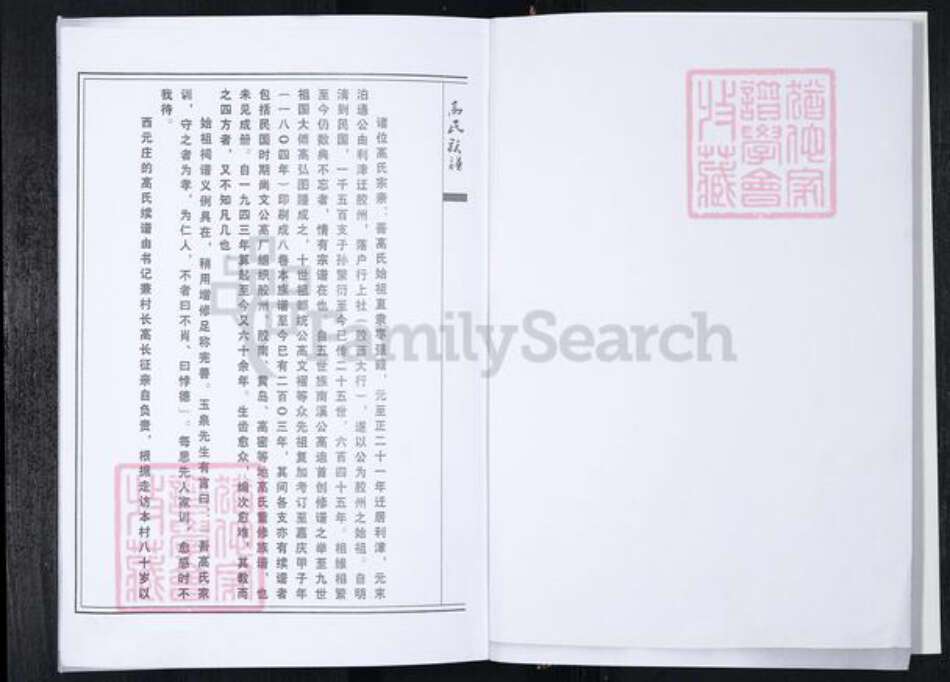 高氏族谱
诸位高氏宗亲：吾高氏始祖直隶枣强籍，元至正二十一年迁居利津，元末
泊通公由利津迁胶州，落户行上社（胶西大行），遂以公为胶州之始祖。自明
清到民国，一千五百支子孙繁衍至今已传二十五世，六百四十五年。相继相繁
至今仍数典不忘者，情有宗谱在也。自五世族南溪公高追首创修谱之举至九世
祖国大师高弘图踵成之，十世祖都统公高文褶等众先祖复加考订至嘉庆甲子年
一一八〇四年）印刷成八卷本族谱至今已有二百〇三年，其间各支亦有续谱者
包括民国时期尚文公高厂组织胶州、胶南、黄岛、高密等地高氏重修族谱，也
未见成册。自一九四三年算起至今又六十余年。生齿愈众，编次愈难，其散而
之四方者，又不知凡几也
始祖祠谱义例具在，稍用增修足称完善。玉泉先生有言曰：“吾高氏家
训，守之者为孝，为仁人，不者曰不肖，曰悖德”。每思先人家训，愈感时不
我待。
西元庄的高氏续谱由书记兼村长高长征亲自负责，根据走访本村八十岁以
FamilySearch
犹他家
谱学会
收藏
犹他家
谱学会
收藏